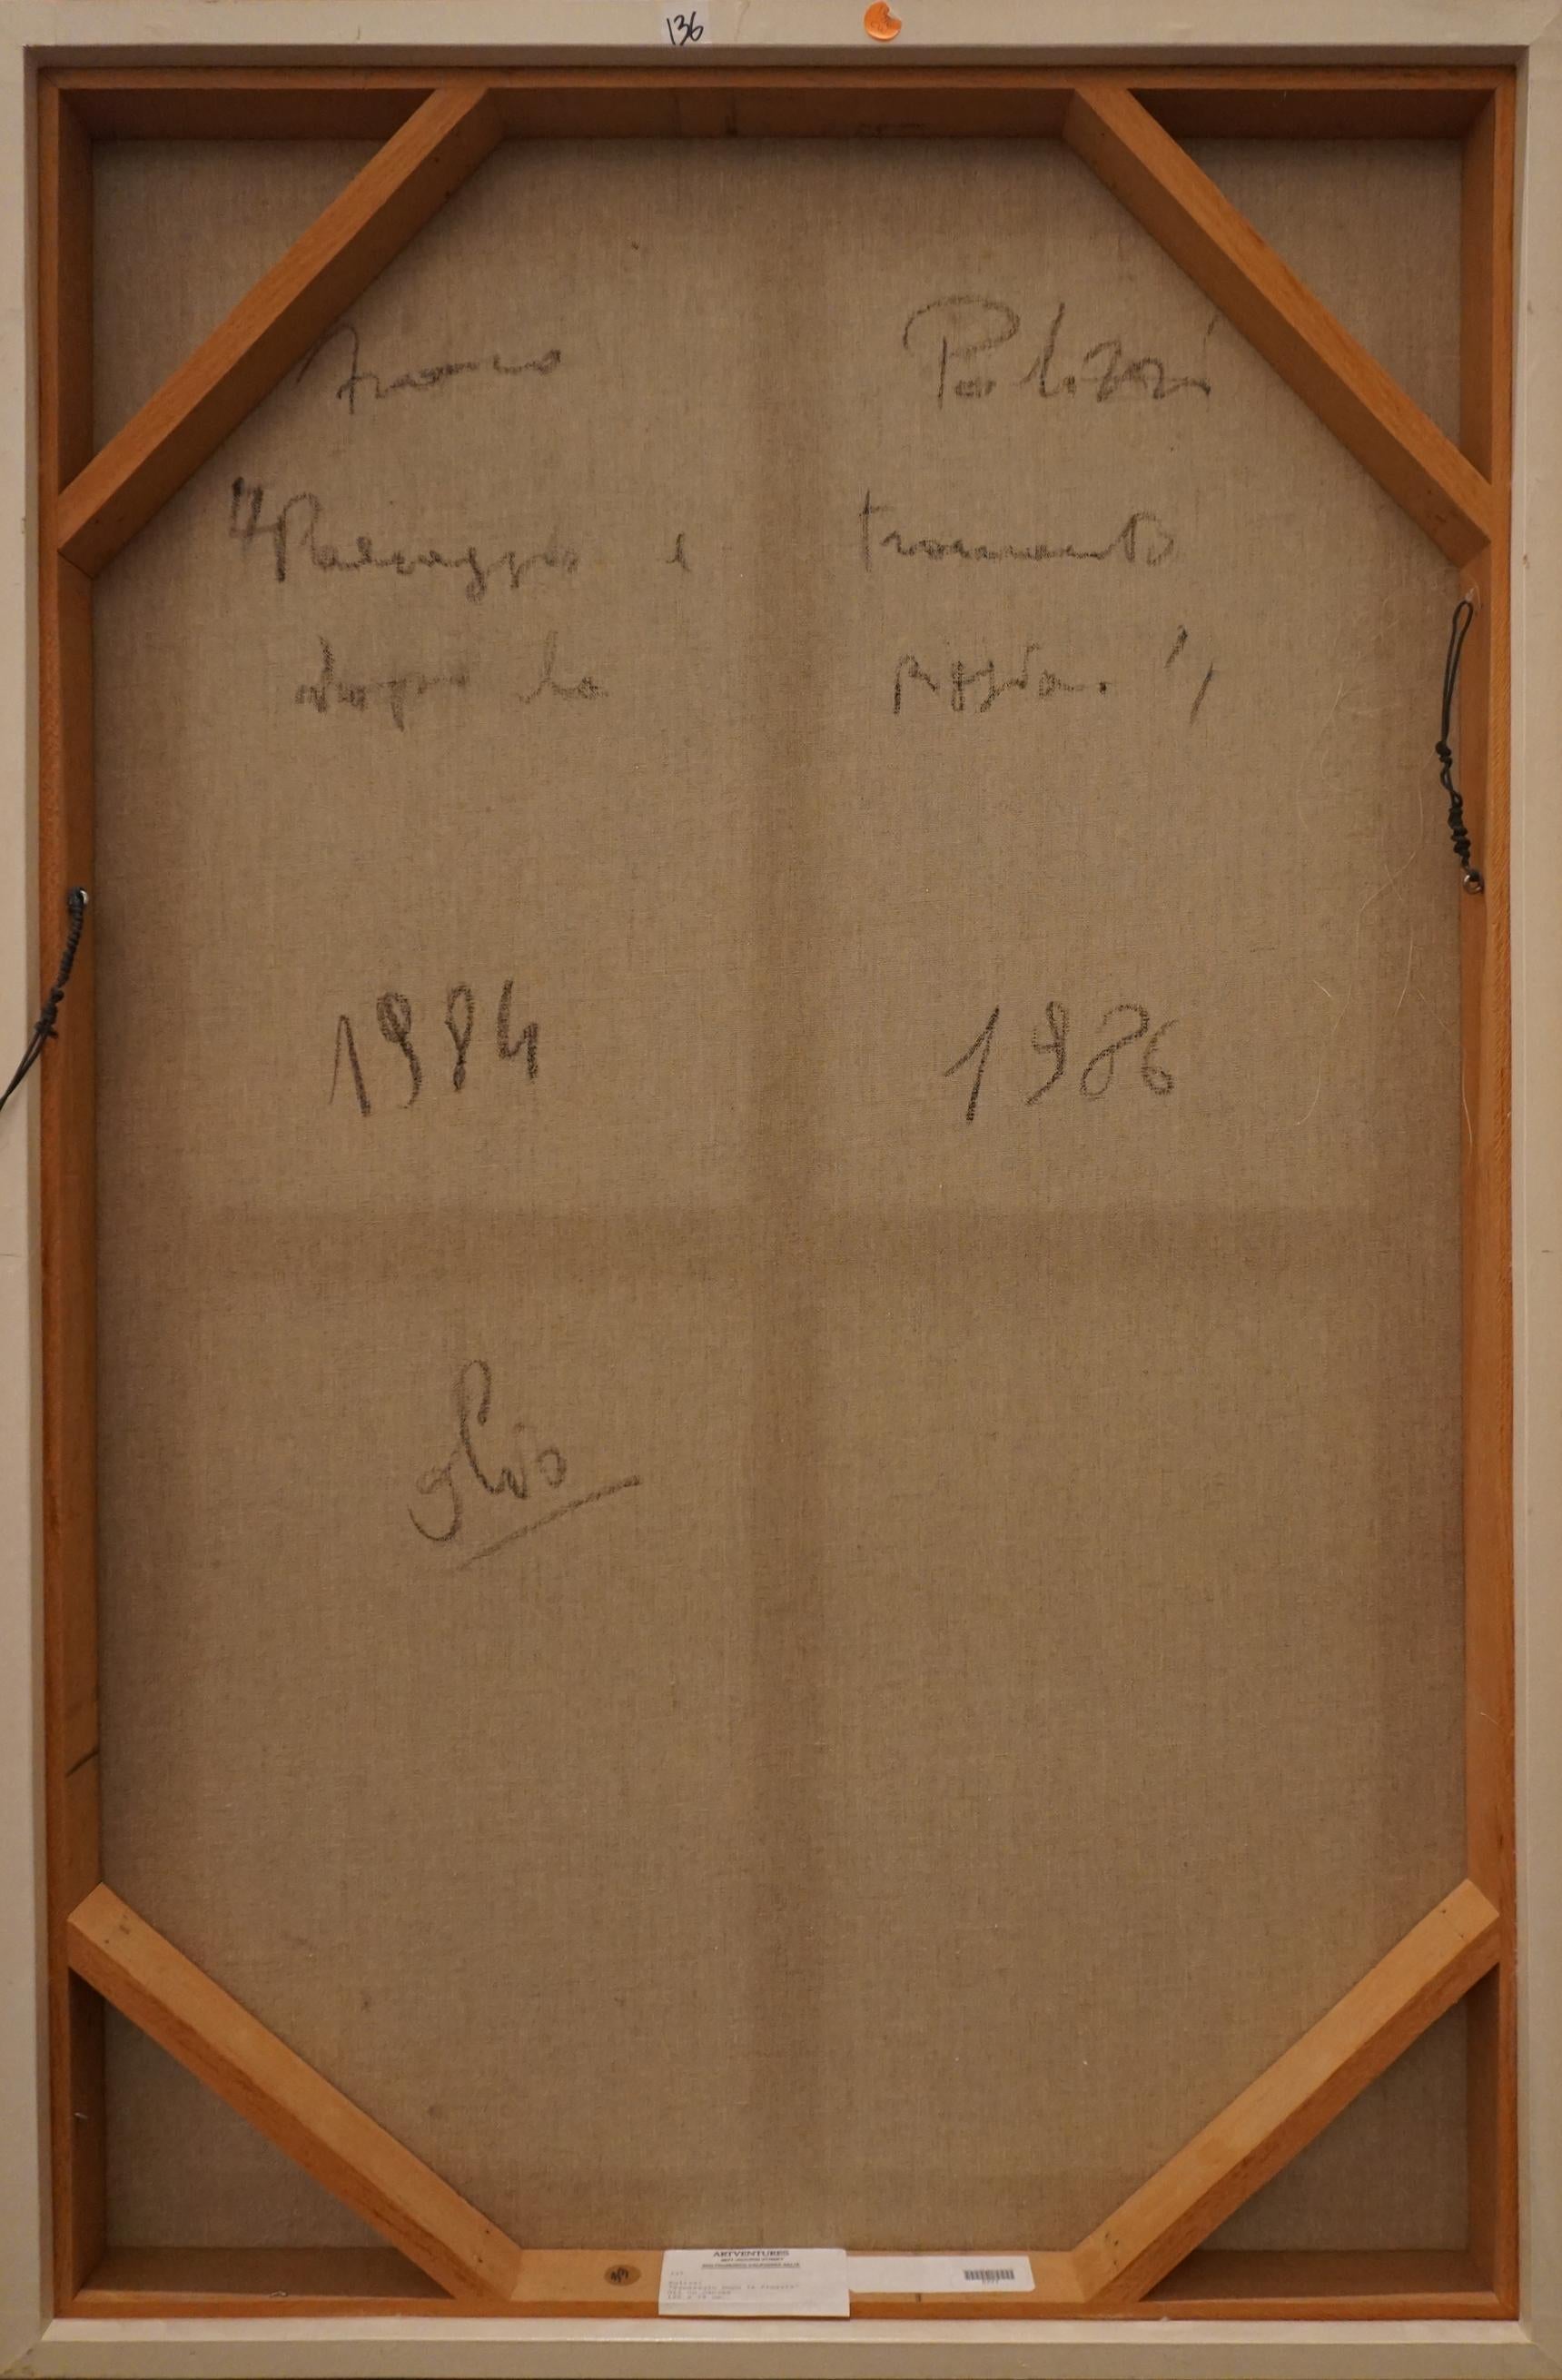 136
Franco Polizzi
"Paesaggio e tramonto
dopo la pioggia."
1984 1986
olio
ARTVENTURES